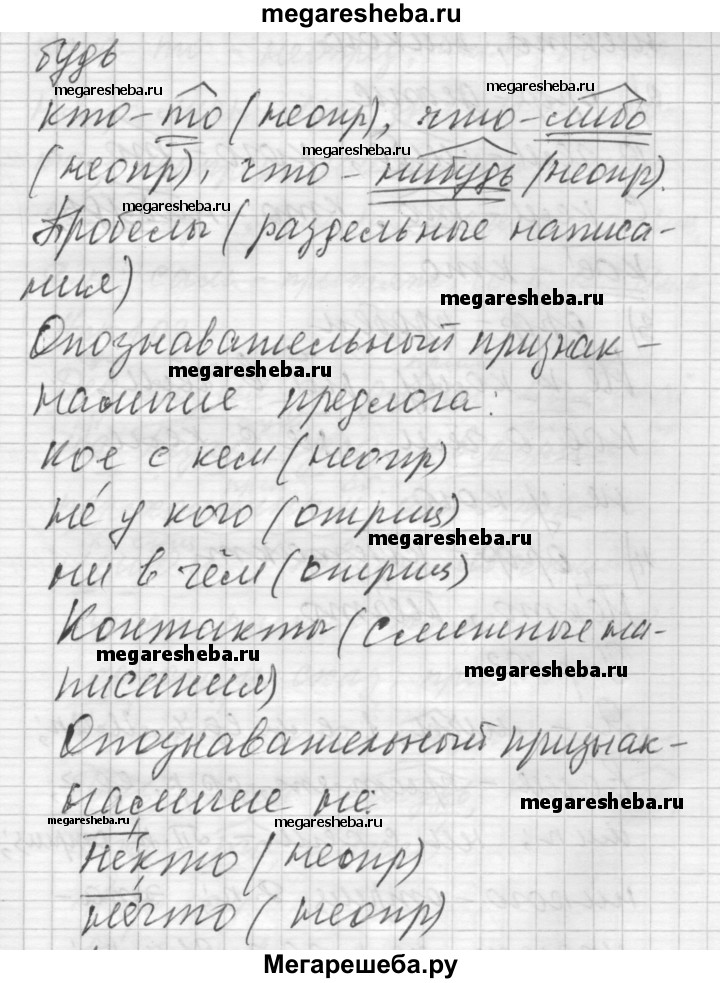 megaresheba.ru
будь
megaresheba.ru megaresheba.ru
кто-то (неопр), что-либо
megaresheba.ru
(неопр), что-нибудь (неопр).
megaresheba.ru
Пробелы (раздельные написа-
ния)
megaresheba.ru
Опознавательный признак -
megaresheba.ru
наличие предлога:
кое с кем (неопр)
не́ у кого (отриц)
megaresheba.ru
ни в чём (отриц)
Контакты (слитные на-
megaresheba.ru megaresheba.ru
писания)
Опознавательный признак -
наличие не:
megaresheba.ru
megaresheba.ru megaresheba.ru
не́кто (неопр)
не́что (неопр)
Мегарешеба.ру